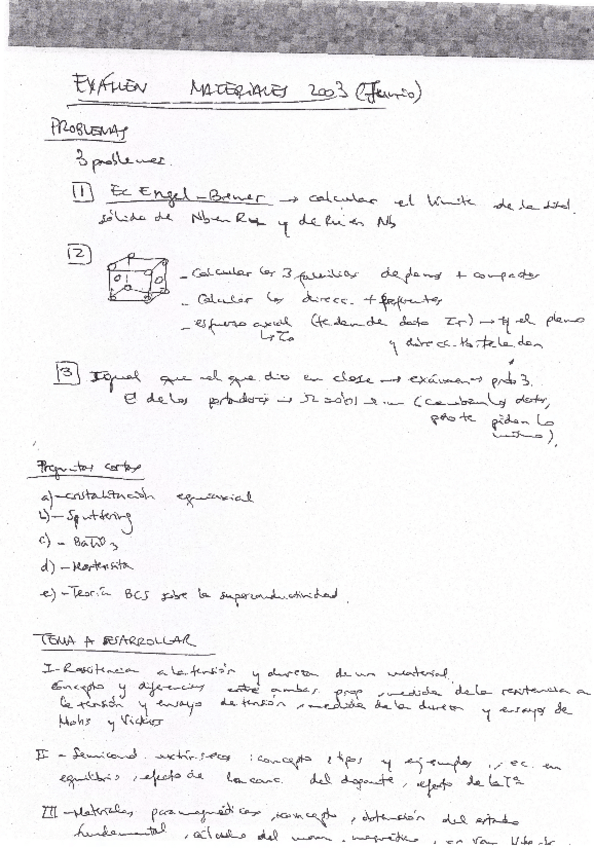 EXÁMEN MATERIALES 2003 (Junio)
PROBLEMAS
3 problemas.
1 Ec Engel-Brewer → calcular el límite de la disol.
sólida de Nb en Ru y de Ru en Nb
2
- Calcular las 3 familias de planos + compactos
- Calcular las direcc. +
- esfuerzo axial (te dan de dato τr) → el plano
y direcc. te la dan
3 Igual que el que dio en clase → exámenes
El de los → (cambian los datos,
pero te piden lo
mismo).
Preguntas cortas
a) - cristalización equiaxial
b) - Sputtering
c) - BaTiO3
d) - Martensita
e) - Teoría BCS sobre la superconductividad.
TEMA A DESARROLLAR
I - Resistencia a la tensión y dureza de un material.
Concepto y diferencias entre ambas prop, medida de la resistencia a
la tensión y ensayo de tensión, medida de la dureza y ensayos de
Mohs y Vickers
II - Semicond. extrínsecos: concepto, tipos y ejemplos, ec. en
equilibrio, efecto de la conc. del dopante, efecto de la Tª
III - Materiales paramagnéticos, concepto, obtención del estado
fundamental, cálculo del mom. magnético,